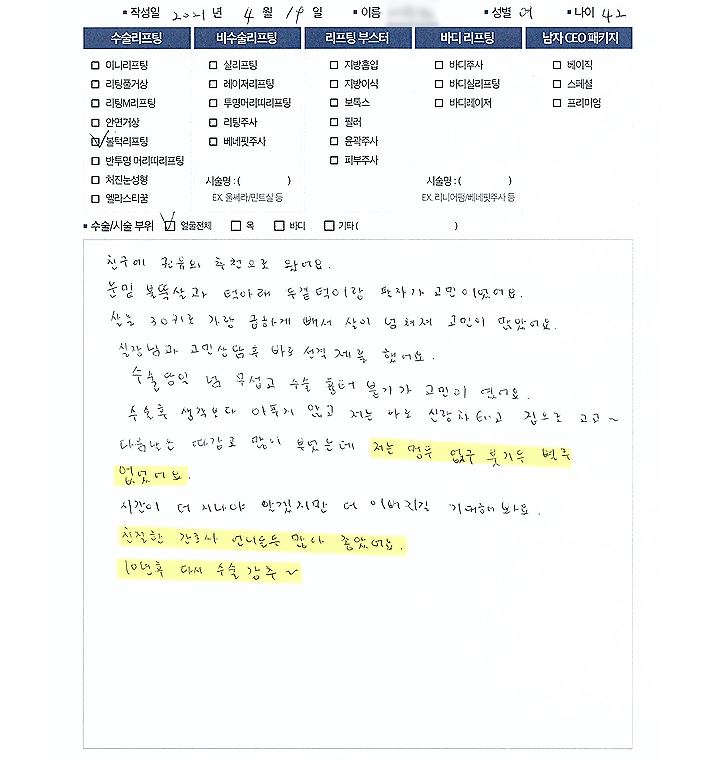 ▪ 작성일 2021 년 4 월 19 일 ▪ 이름 ▪ 성별 여 ▪ 나이 42
수술리프팅 비수술리프팅 리프팅 부스터 바디 리프팅 남자 CEO 패키지
□ 미니리프팅 □ 실리프팅 □ 지방흡입 □ 바디주사 □ 베이직
□ 리팅풀거상 □ 레이저리프팅 □ 지방이식 □ 바디실리프팅 □ 스페셜
□ 리팅M리프팅 □ 투명머리띠리프팅 □ 보톡스 □ 바디레이저 □ 프리미엄
□ 안면거상 □ 리팅주사 □ 필러
☑ 볼턱리프팅 □ 베네핏주사 □ 윤곽주사
□ 반투명 머리띠리프팅 □ 피부주사
□ 처진눈성형 시술명 : ( ) 시술명 : ( )
□ 엘라스티꿈 EX. 울쎄라/민트실 등 EX. 리니어펌/베네핏주사 등
▪ 수술/시술 부위 ☑ 얼굴전체 □ 목 □ 바디 □ 기타 ( )
친구에 권유와 추천으로 왔어요.
눈밑 불뚝살과 턱아래 두겹턱이랑 팔자가 고민이었어요.
살을 30키로 가량 급하게 빼서 살이 넘 쳐져 고민이 많았어요.
실장님과 고민상담후 바로 선결제를 했어요.
수술당일 넘 무섭고 수술 흉터 붓기가 고민이 였어요.
수술후 생각보다 아푸지 않고 저는 바로 신랑차타고 집으로 고고~
다음날는 땡감로 많이 부었는데 저는 멍두 없구 붓기두 별루
없었어요.
시간이 더 지나야 알겠지만 더 이뻐지길 기대해 봐요.
친절한 간호사 언니들두 많아 좋았어요.
10년후 다시 수술 강추~